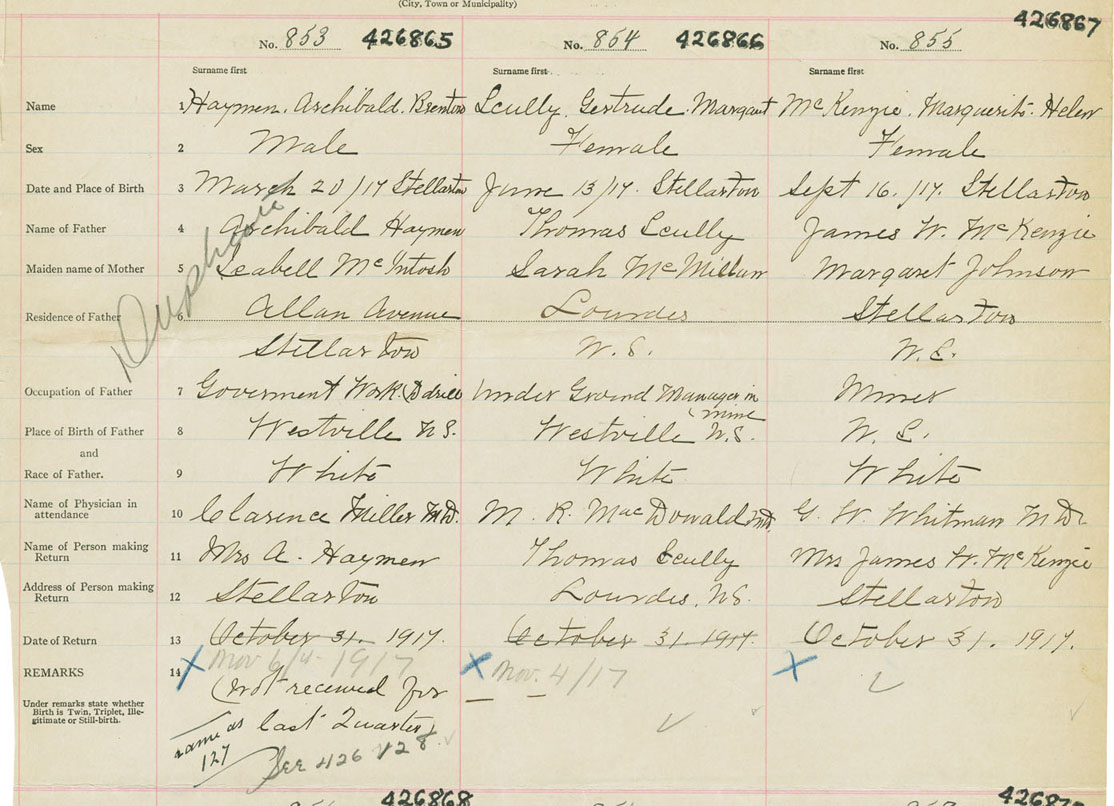 (City, Town or Municipality)
No. 853 426865 No. 854 426866 No. 855 426867
Surname first Surname first Surname first
Name 1 Haymen. Archibald. Brenton Scully. Gertrude. Margaret McKenzie. Marguerite. Helen
Sex 2 Male Female Female
Date and Place of Birth 3 March 20/17 Stellarton June 13/17. Stellarton Sept 16./17. Stellarton
Name of Father 4 Archibald Haymen Thomas Scully James W. McKenzie
Maiden name of Mother 5 Leabell McIntosh Sarah McMillan Margaret Johnson
Residence of Father 6 Allan Avenue Lourdes Stellarton
Stellarton N.S. N.S.
Duplicate
Occupation of Father 7 Goverment Work (D drill Under Ground Manager in Miner
mine
Place of Birth of Father 8 Westville N.S. Westville N.S. N.S.
and
Race of Father. 9 White White White
Name of Physician in
attendance 10 Clarence Miller M.D. M. R. MacDonald MD. G. W. Whitman M.D.
Name of Person making
Return 11 Mrs A. Haymen Thomas Scully Mrs James W. McKenzie
Address of Person making
Return 12 Stellarton Lourdes, N.S. Stellarton
Date of Return 13 October 31. 1917. October 31. 1917. October 31. 1917.
REMARKS 14 Nov 1917 Nov. 4/17
Under remarks state whether
Birth is Twin, Triplet, Ille-
gitimate or Still-birth.
(Not received for
last Quarter)
same as
127
See 426128
426868